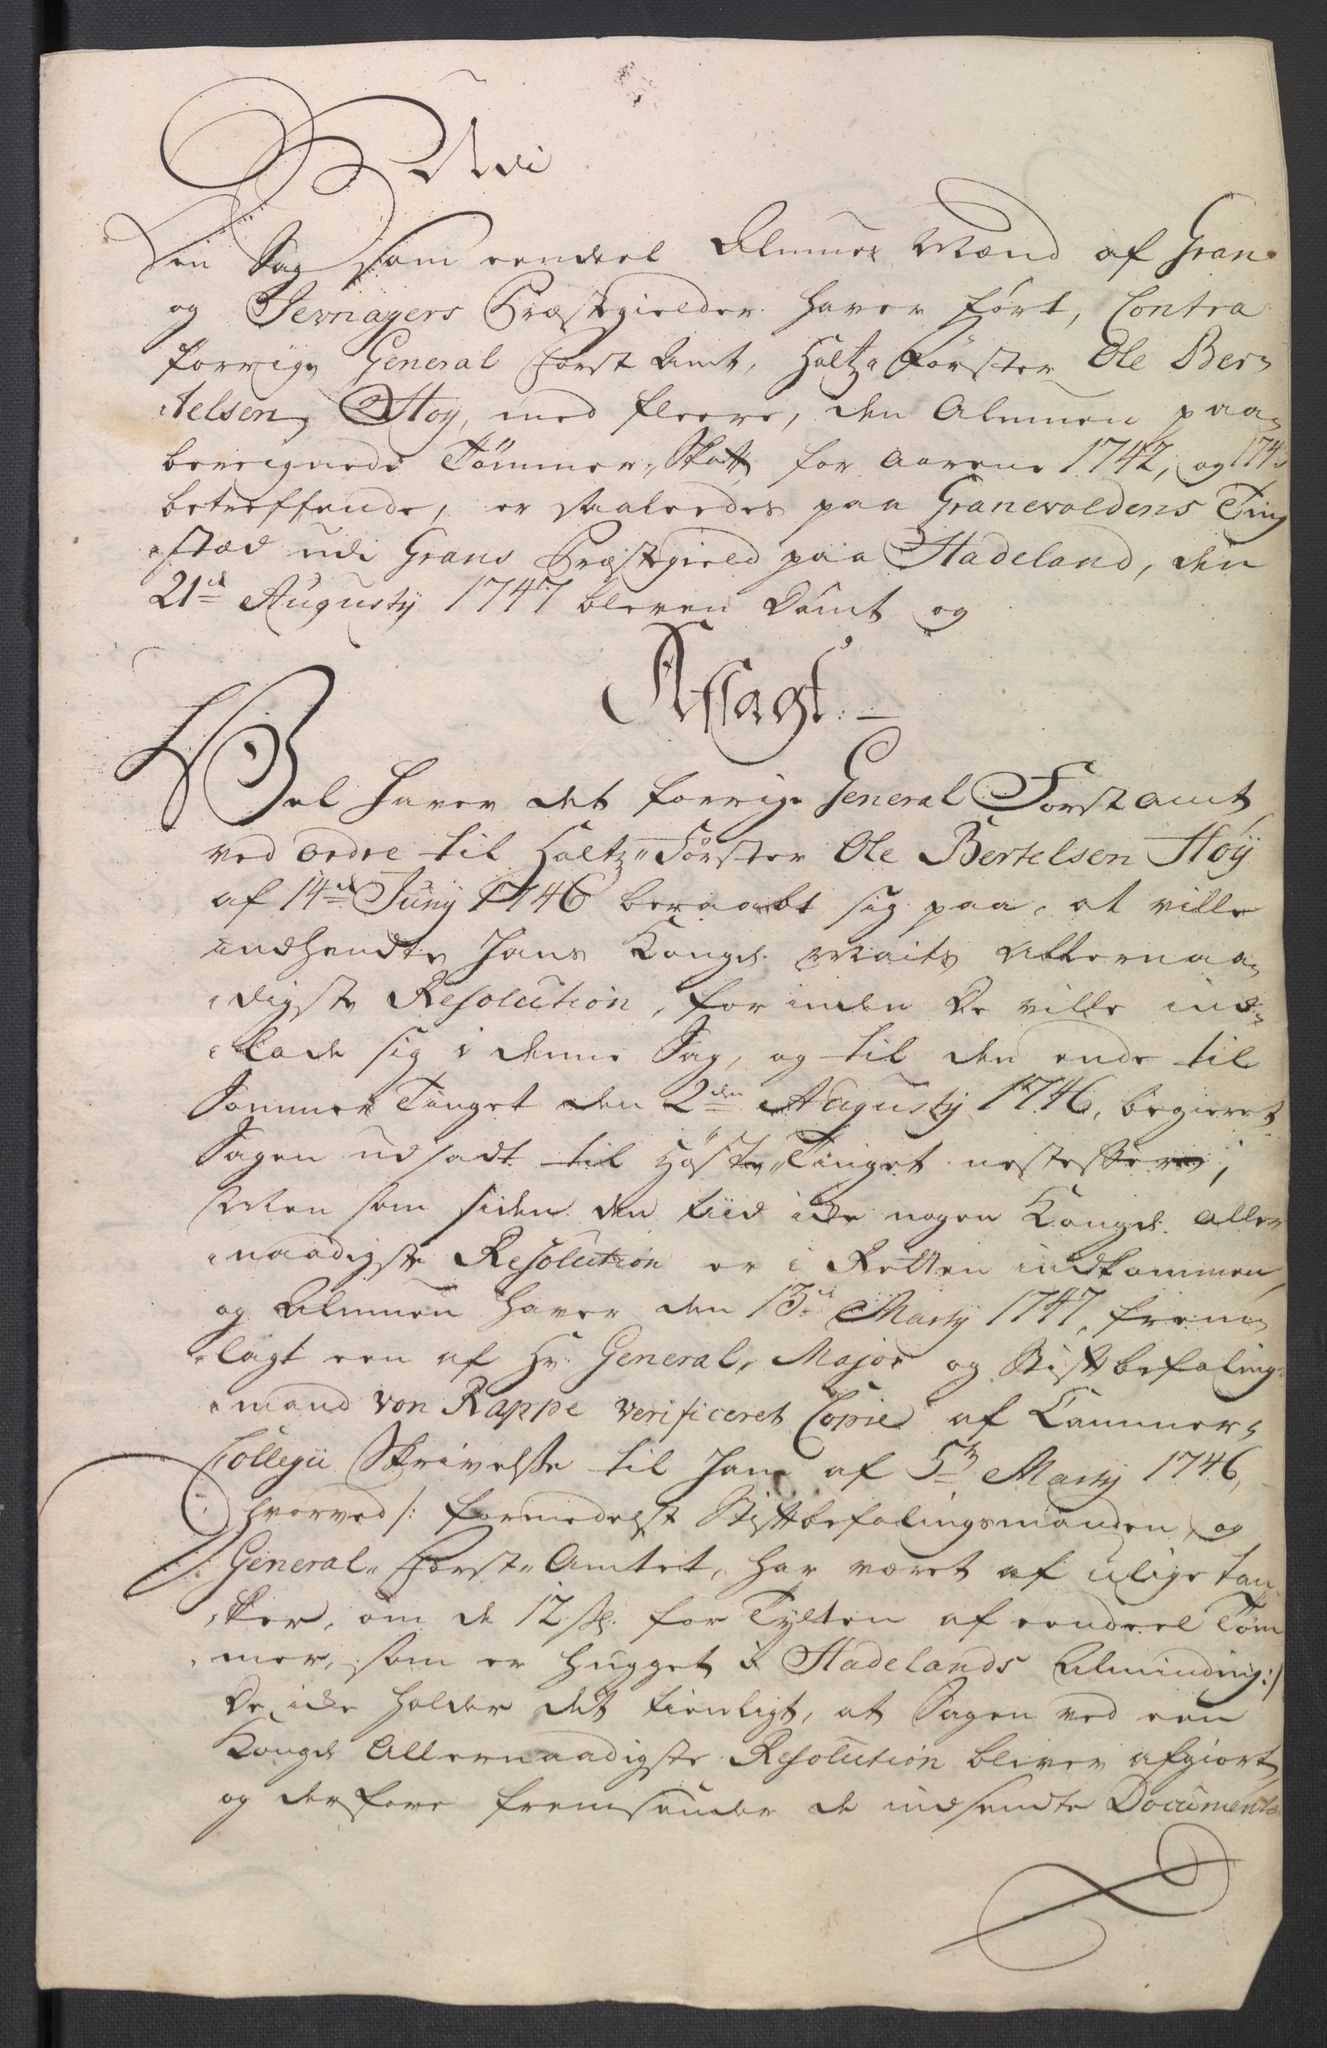 Udi
Een Sag som eendeel Almues Mænd af Gran
og Jevnagers Præstegielder haver ført, Contra
forrige General Forst Amt, Holtz Førster Ole Ber„
„telsen Høy, med fleere, den Almuen paa„
bereignede Tømmer„Skatt, for Aarene 1742, og 174
betreffende, er saaledes paa Granevoldens Ting
„stæd udi Grans Præstegield paa Hadeland, den
21de Augusty 1747 bleven Dømt og
Afsagt.
Vel haver det forrige General Forstamt
ved Ordre til Holtz„Førster Ole Bertelsen Høy
af 14de Juny 1746 beraabt sig paa, at ville
indhendte Hans Kongl. Maits Allernaa„
„digste Resolution, forinden De ville ind„
„lade sig i denne Sag, og til den ende til
Sommer Tinget den 2den Augusty 1746, begieret
Sagen udsadt til Høste„Tinget nestefter,
Men som siden den tiid icke nogen Kongl. aller
„naadigste Resolution er i Retten indkommen,
og Almuen haver den 13de Marty 1747, frem„
„lagt een af Hr. General„Major og Stiftbefalings
„mand von Rappe verificeret Copie af Cammer„
Collegii Skrivelse til Ham af 5te Marty 1746,
hvorved /: formedelst Stiftbefalingsmanden og
General„Forst„Amtet, har været af ulige tan
„ker, om de 12 sk. for Tylten af eendeel Tøm
„mer, som er hugget i Hadelands Alminding :/
De icke holder det tienligt, at Sagen ved een
Kongl. Allernaadigste Resolution bliver afgiort,
og derfore fremsender de indsendte Documenter